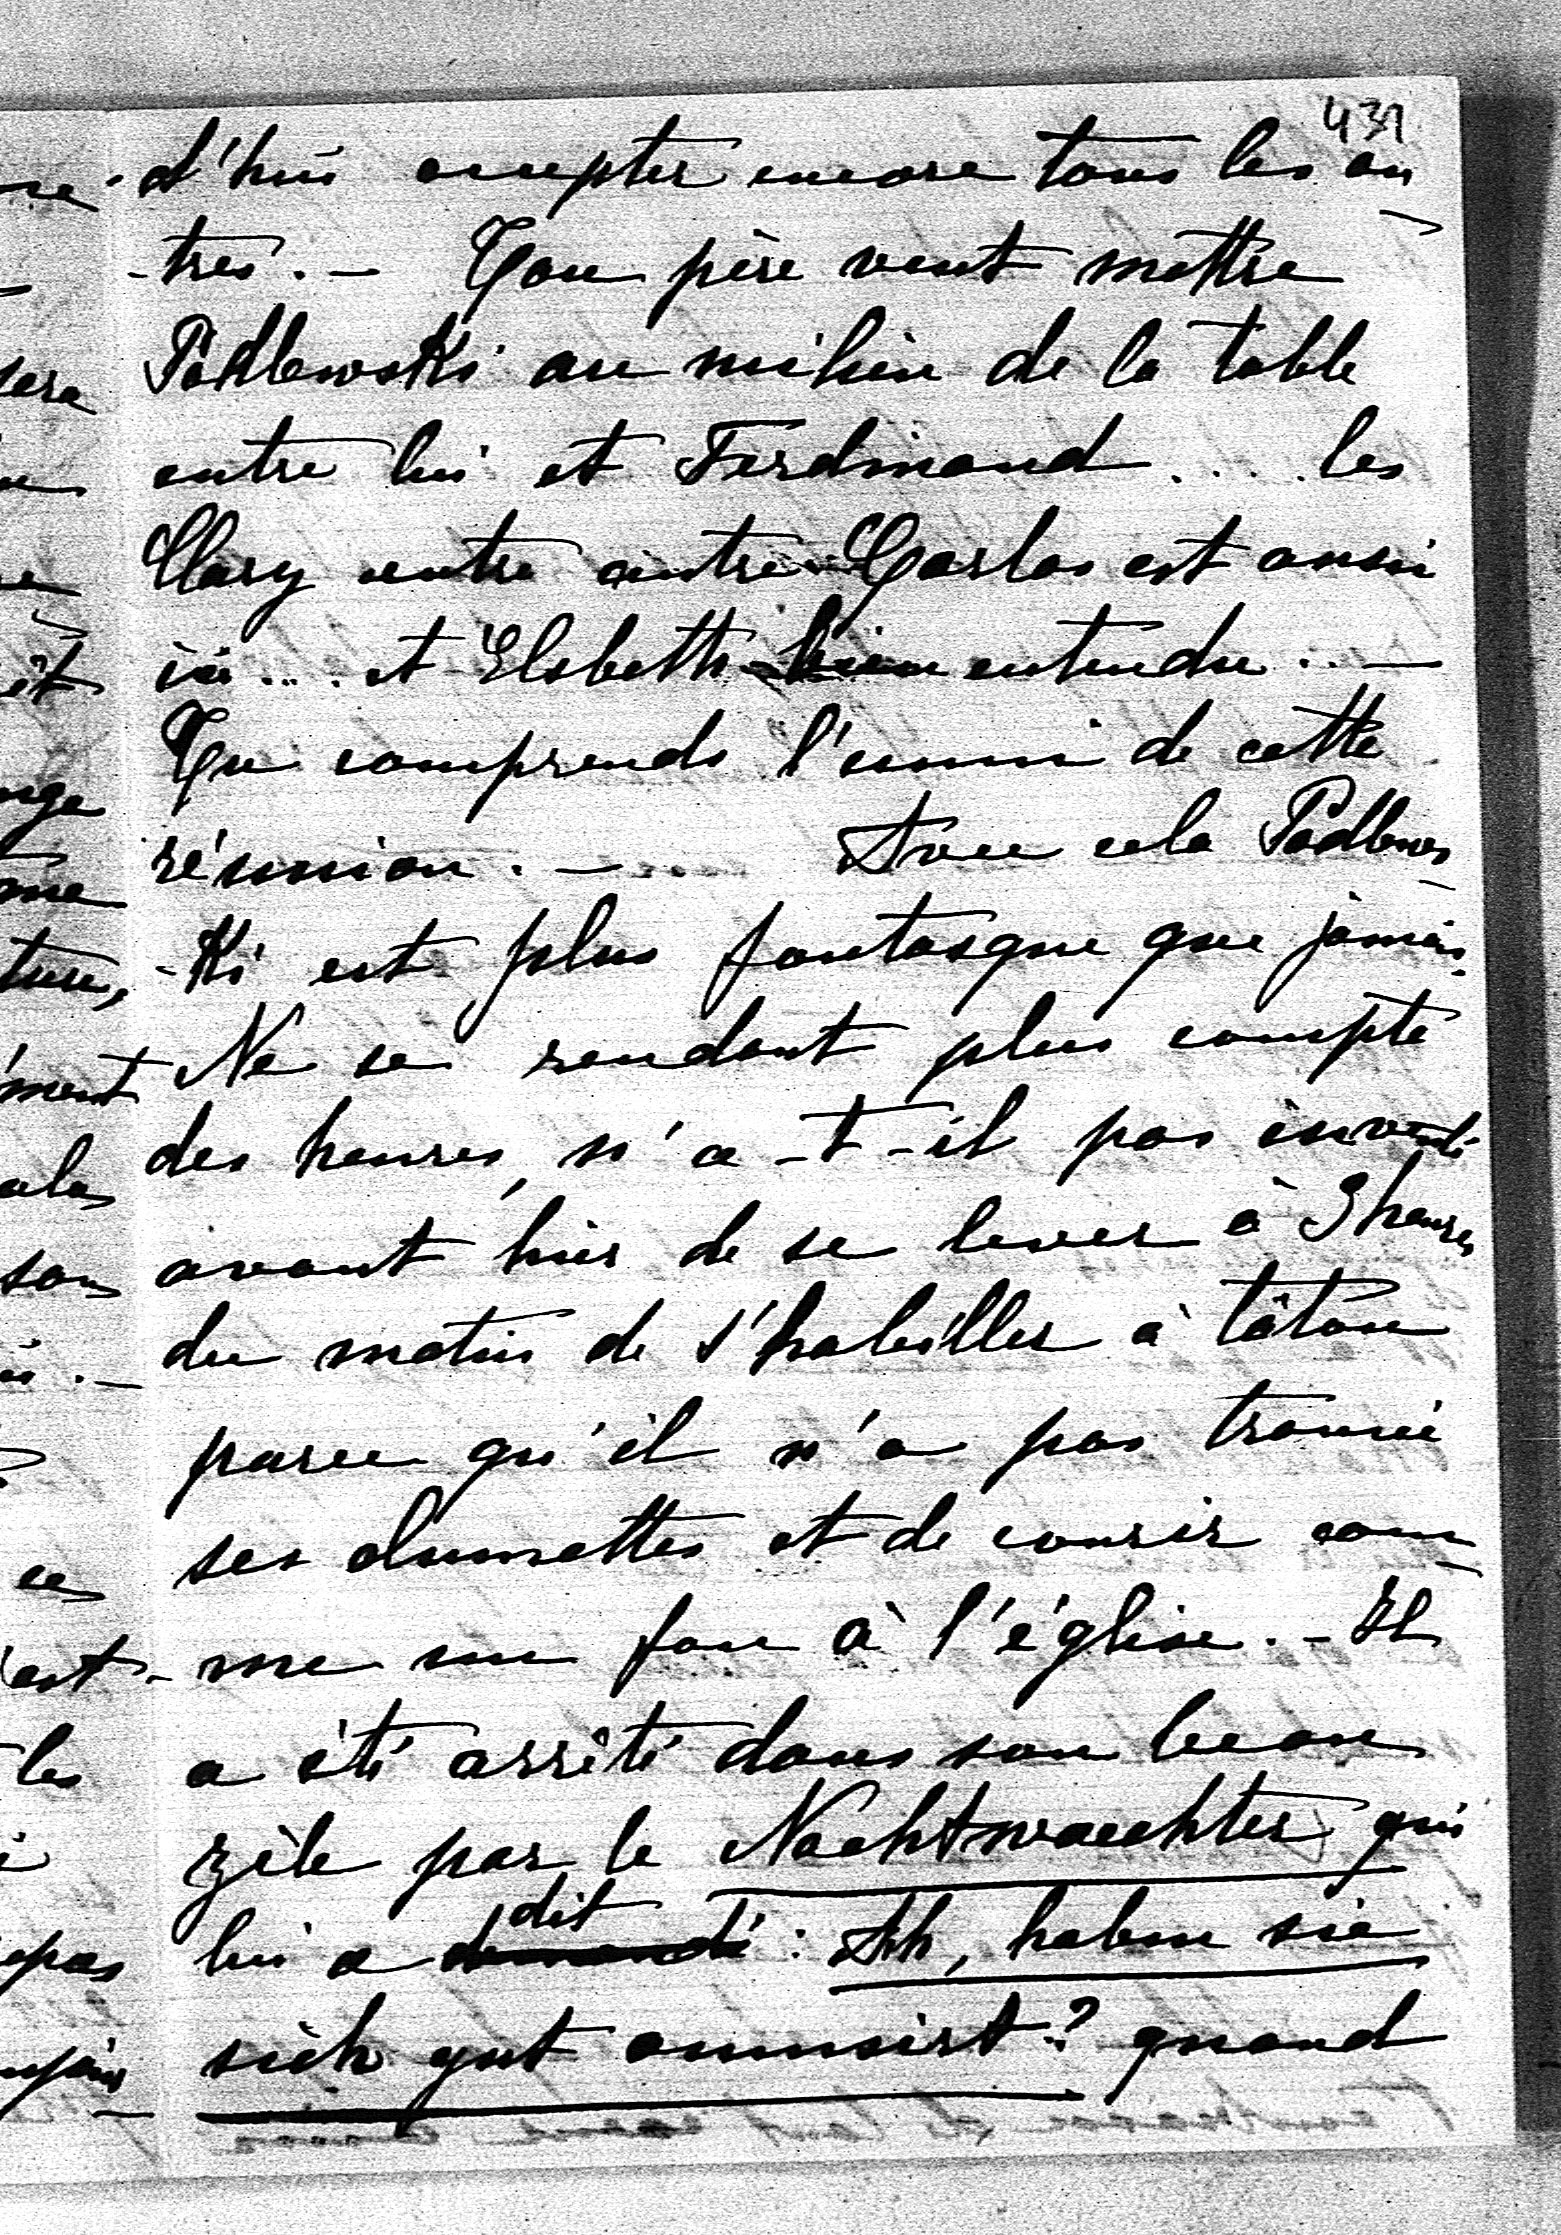 431
d'hui accepter encore tous les au
-tres. - Ton père veut mettre
Podlewski au milieu de la table
entre lui et Ferdinand .... les
Clary entre autre Carlos est aussi
ici... et Elsbeth bien entendu... -
Tu comprends l'ennui de cette
réunion. - Avec cela Podlews
-ki est plus fantasque que jamais.
Ne se rendant plus compte
des heures, n'a-t-il pas inventé
avant hier de se lever à 3 heures
du matin de s'habiller à tâton
parce qu'il n'a pas trouvé
ses alumettes et de courir com-
-me un fou à l'église. - Il
a été arrêté dans son beau
zèle par le Nachtwaechter qui
lui a demandé dit : Ah, haben sie
sich gut amusirt? quand